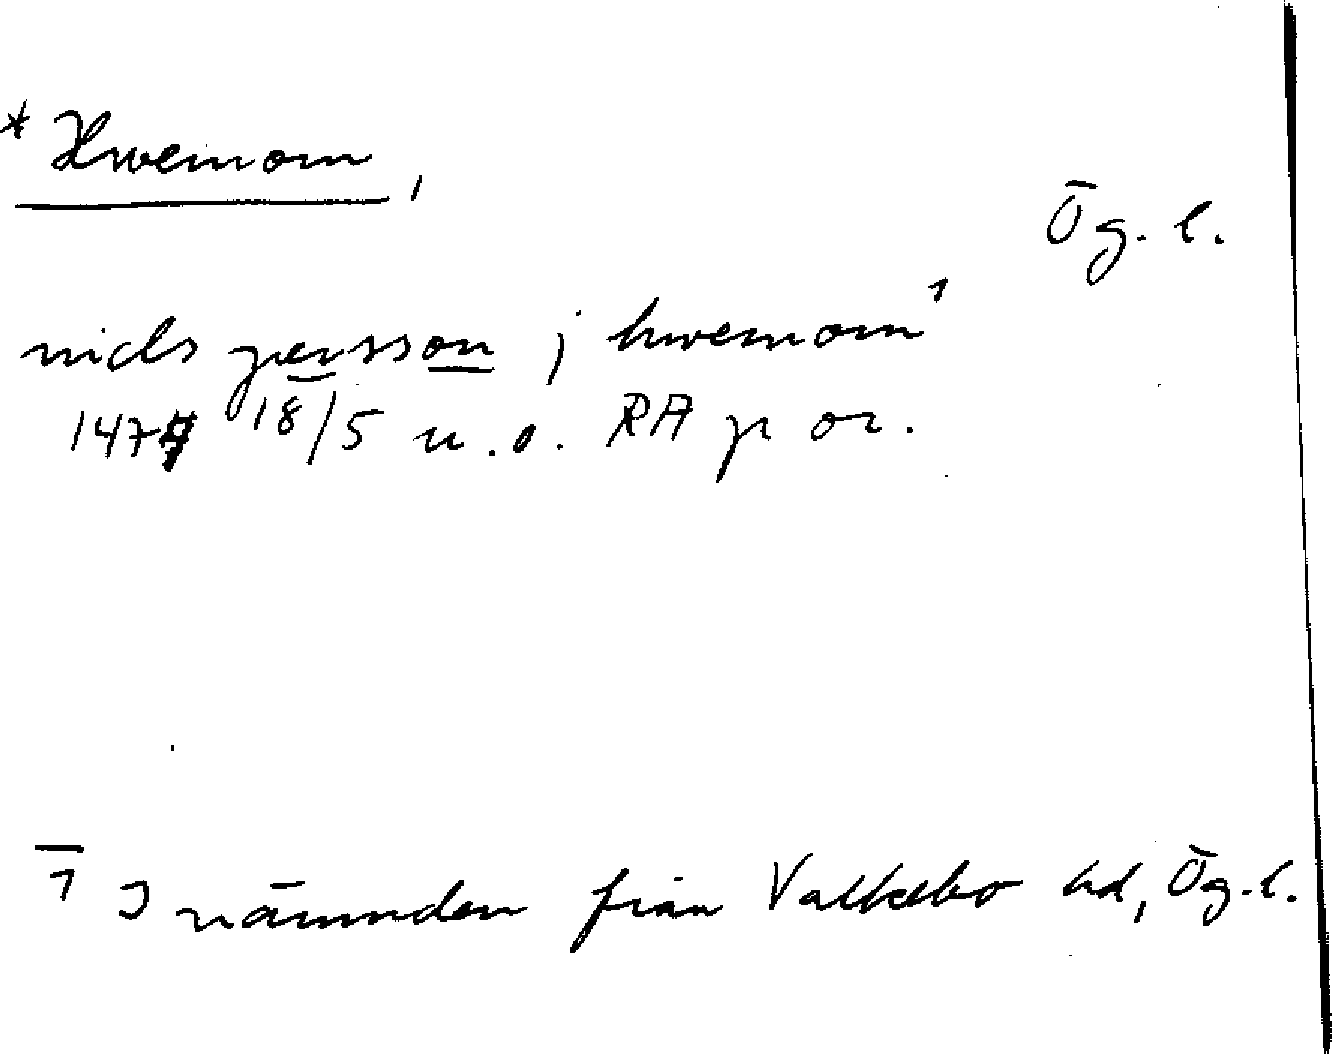 * Hvemom,
Ög. l.
niels persson j hvemom¹
1474 18/5 u.o. RA p or.
1 I nämnden från Valkebo hd, Ög. l.